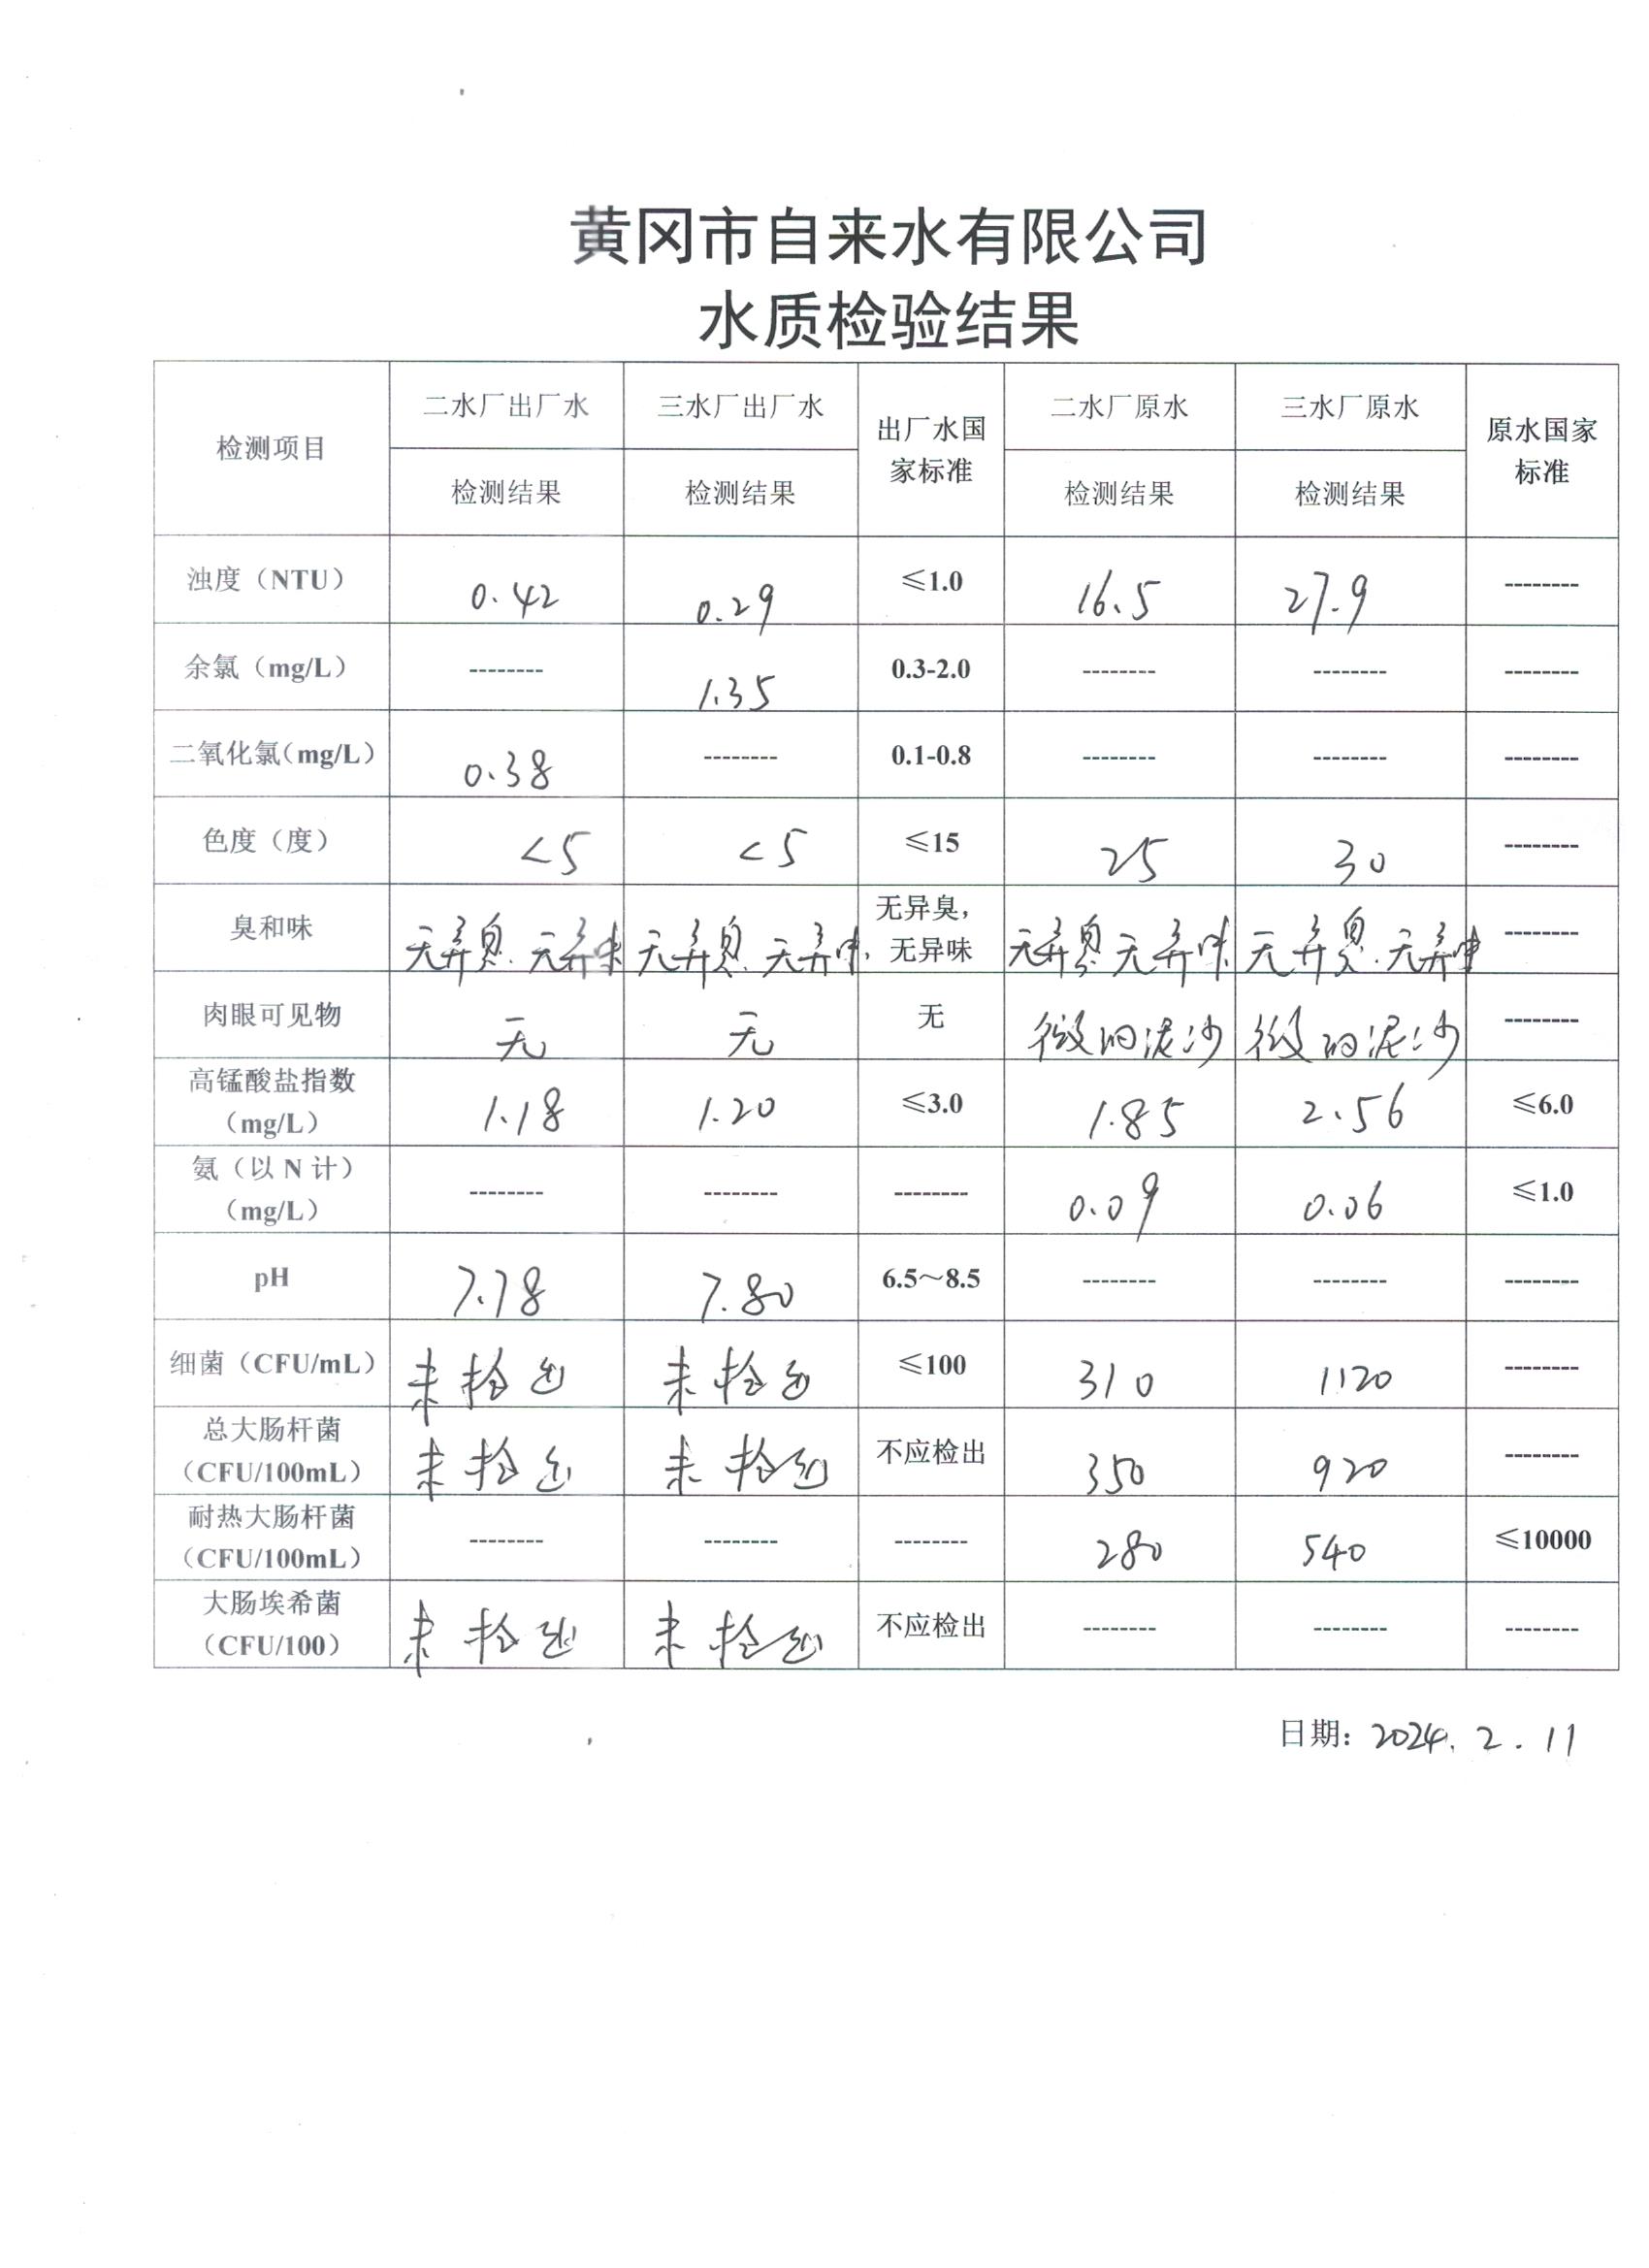 黄冈市自来水有限公司
水质检验结果
检测项目 二水厂出厂水 三水厂出厂水 出厂水国家标准 二水厂原水 三水厂原水 原水国家标准
检测结果 检测结果 检测结果 检测结果
浊度（NTU） 0.42 0.29 ≤1.0 16.5 27.9 --------
余氯（mg/L） -------- 1.35 0.3-2.0 -------- -------- --------
二氧化氯（mg/L） 0.38 -------- 0.1-0.8 -------- -------- --------
色度（度） <5 <5 ≤15 25 30 --------
臭和味 无异臭.无异味 无异臭.无异味. 无异臭，无异味 无异臭无异味 无异臭.无异味 --------
肉眼可见物 无 无 无 微的泥沙 微的泥沙 --------
高锰酸盐指数（mg/L） 1.18 1.20 ≤3.0 1.85 2.56 ≤6.0
氨（以 N 计）（mg/L） -------- -------- -------- 0.09 0.06 ≤1.0
pH 7.78 7.80 6.5～8.5 -------- -------- --------
细菌（CFU/mL） 未检出 未检出 ≤100 310 1120 --------
总大肠杆菌（CFU/100mL） 未检出 未检出 不应检出 350 920 --------
耐热大肠杆菌（CFU/100mL） -------- -------- -------- 280 540 ≤10000
大肠埃希菌（CFU/100） 未检出 未检出 不应检出 -------- -------- --------
日期：2024.2.11